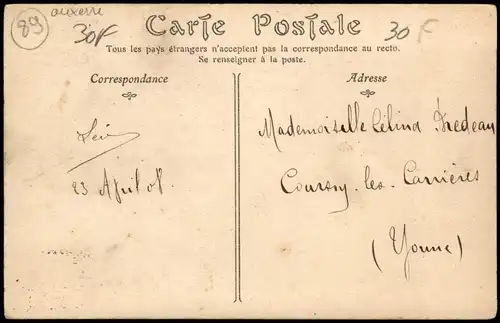 89
auxerre
30F
30F
Carte Postale
Tous les pays étrangers n'acceptent pas la correspondance au recto.
Se renseigner à la poste.
Correspondance
Adresse
23 April 08
Mademoiselle Célina
Courson-les-Carrières
(Yonne)